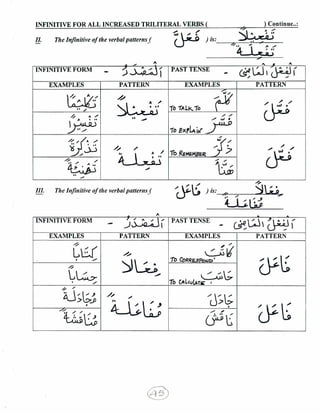 INFINITIVE FOR ALL INCREASED TRILITERAL VERBS ( ) Continue..:
II. The Infinitive of the verbal patterns ( فَعَّلَ ) is: تَفْعِيْلٌ
تَفْعِلَةٌ
INFINITIVE FORM - اَلْمَصْدَرُ PAST TENSE - اَلْفِعْلُ الْمَاضِي
EXAMPLES PATTERN EXAMPLES PATTERN
تَكْلِيْمًا تَفْعِيْلٌ TO TALK TO كَلَّمَ فَعَّلَ
تَفْسِيْرًا TO EXPLAIN فَسَّرَ
تَذْكِرَةً تَفْعِلَةٌ TO REMEMBER ذَكَّرَ فَعَّلَ
III. The Infinitive of the verbal patterns ( فَاعَلَ ) is: فِعَالٌ
مُفَاعَلَةٌ
INFINITIVE FORM - اَلْمَصْدَرُ PAST TENSE - اَلْفِعْلُ الْمَاضِي
EXAMPLES PATTERN EXAMPLES PATTERN
كِتَابًا فِعَالٌ TO CORRESPOND كَاتَبَ فَاعَلَ
حِسَابًا TO CALCULATE حَاسَبَ
مُجَادَلَةً مُفَاعَلَةٌ جَادَلَ فَاعَلَ
مُنَاقَشَةً نَاقَشَ